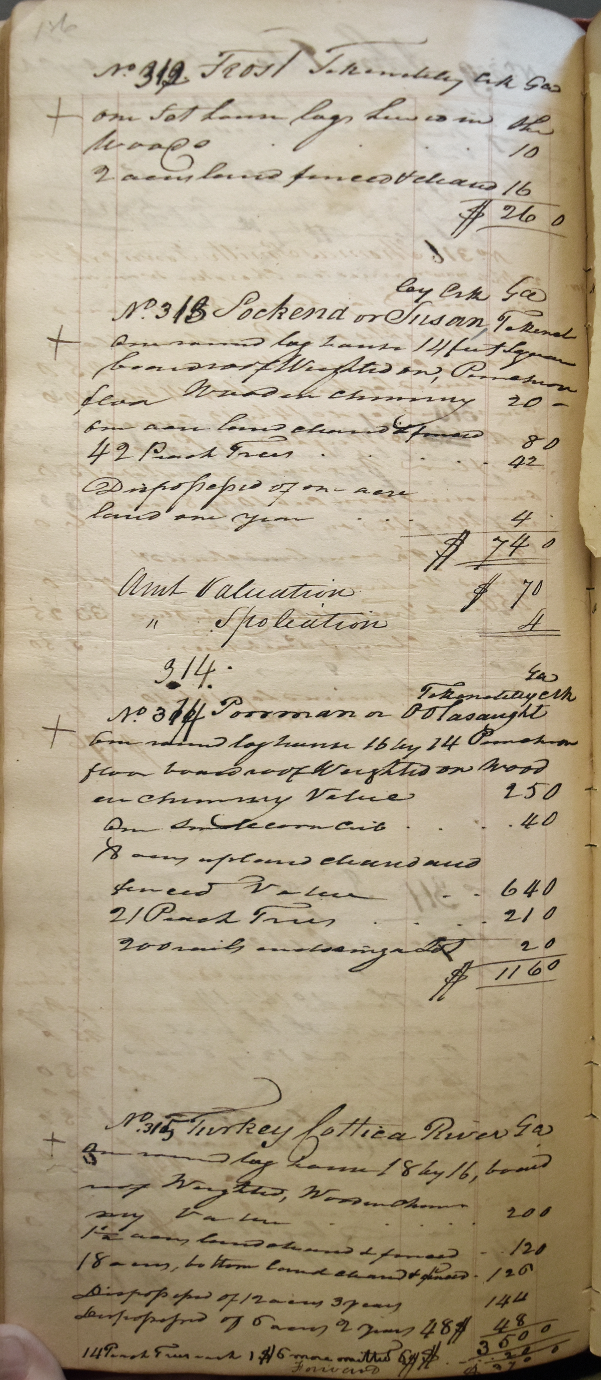 186
No 312. Frost Tekeneteley Crk Ga
+ one Set house logs hewed in the
Woods . . . . 10
2 acres land fenced & cleard 16
$ 26 0
ley Crk Ga
No. 313 Sockend or Susan, Tekenet
+ One round log house 14 feet Square
board roof Weighted on, Puncheon
floor Wooden chimney 20 -
One acre land cleard & fenced 8 0
42 Peach Trees . . . 42
Dispossessed of one acre
land one year . . . 4
$ 74 0
Amt Valuation $ 70
" Spoliation 4
314.
Ga
Tekeneteley Crk
No 314 Poorman or Oolasaught
+ One round log house 16 by 14 Puncheon
floor board roof Weighted on Wood
en chimney Value 25 0
One small corn crib . . . 4 0
8 acres upland cleard and
fenced Value . . 64 0
21 Peach Trees . . . 21 0
200 rails enclosing a Lot 2 0
$ 116 0
No. 315 Turkey Cottica River Ga
+ One round log house 18 by 16, board
roof Weighted, Wooden Chim
ney Value . . . 20 0
12 acres land cleard & fenced . 120
18 acres, bottom land cleard & fenced . 126
Dispossessed of 12 acres 3 years 144
Dispossessed of 6 acres 2 years 48 $ 48
14 Peach Trees each 1 $ 6 more omitted 6 $
Forward